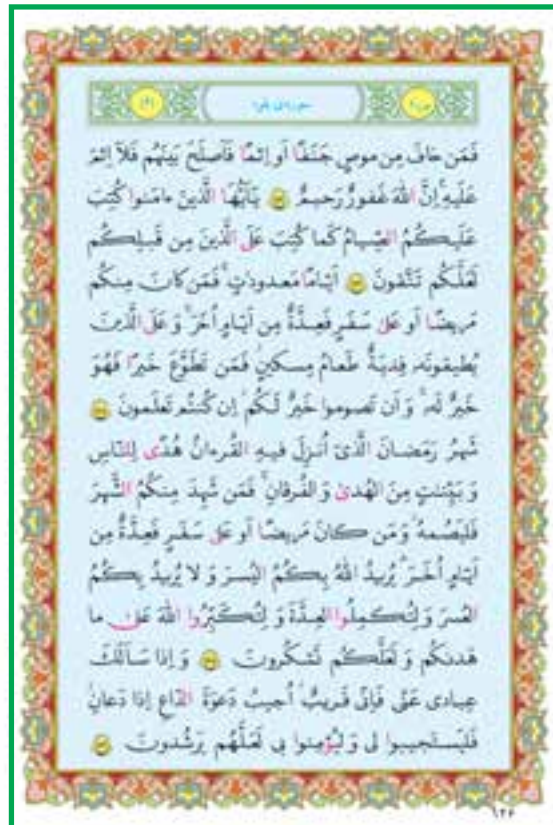 جزء ۲
سوره‌ی بقره
(۲)
فَمَن خافَ مِن موصٍ جَنَفًا أَو إِثمًا فَأَصلَحَ بَينَهُم فَلا إِثمَ
عَلَيهِ إِنَّ اللهَ غَفورٌ رَحيمٌ ﴿۱۸۲﴾ يَأَيُّهَا الَّذينَ ءامَنوا كُتِبَ
عَلَيكُمُ الصِّيامُ كَما كُتِبَ عَلَى الَّذينَ مِن قَبلِكُم
لَعَلَّكُم تَتَّقونَ ﴿۱۸۳﴾ أَيّامًا مَعدودٰتٍ فَمَن كانَ مِنكُم
مَريضًا أَو عَلىٰ سَفَرٍ فَعِدَّةٌ مِن أَيّامٍ أُخَرَ وَ عَلَى الَّذينَ
يُطيقونَهُ فِديَةٌ طَعامُ مِسكينٍ فَمَن تَطَوَّعَ خَيرًا فَهُوَ
خَيرٌ لَهُ وَ أَن تَصوموا خَيرٌ لَكُم إِن كُنتُم تَعلَمونَ ﴿۱۸۴﴾
شَهرُ رَمَضانَ الَّذى أُنزِلَ فيهِ القُرءانُ هُدًى لِلنّاسِ
وَ بَيِّنٰتٍ مِنَ الهُدىٰ وَ الفُرقانِ فَمَن شَهِدَ مِنكُمُ الشَّهرَ
فَليَصُمهُ وَ مَن كانَ مَريضًا أَو عَلىٰ سَفَرٍ فَعِدَّةٌ مِن
أَيّامٍ أُخَرَ يُريدُ اللهُ بِكُمُ اليُسرَ وَ لا يُريدُ بِكُمُ
العُسرَ وَ لِتُكمِلُوا العِدَّةَ وَ لِتُكَبِّرُوا اللهَ عَلىٰ ما
هَدىٰكُم وَ لَعَلَّكُم تَشكُرونَ ﴿۱۸۵﴾ وَ إِذا سَأَلَكَ
عِبادى عَنّى فَإِنّى قَريبٌ أُجيبُ دَعوَةَ الدّاعِ إِذا دَعانِ
فَليَستَجيبوا لى وَ ليُؤمِنوا بى لَعَلَّهُم يَرشُدونَ ﴿۱۸۶﴾